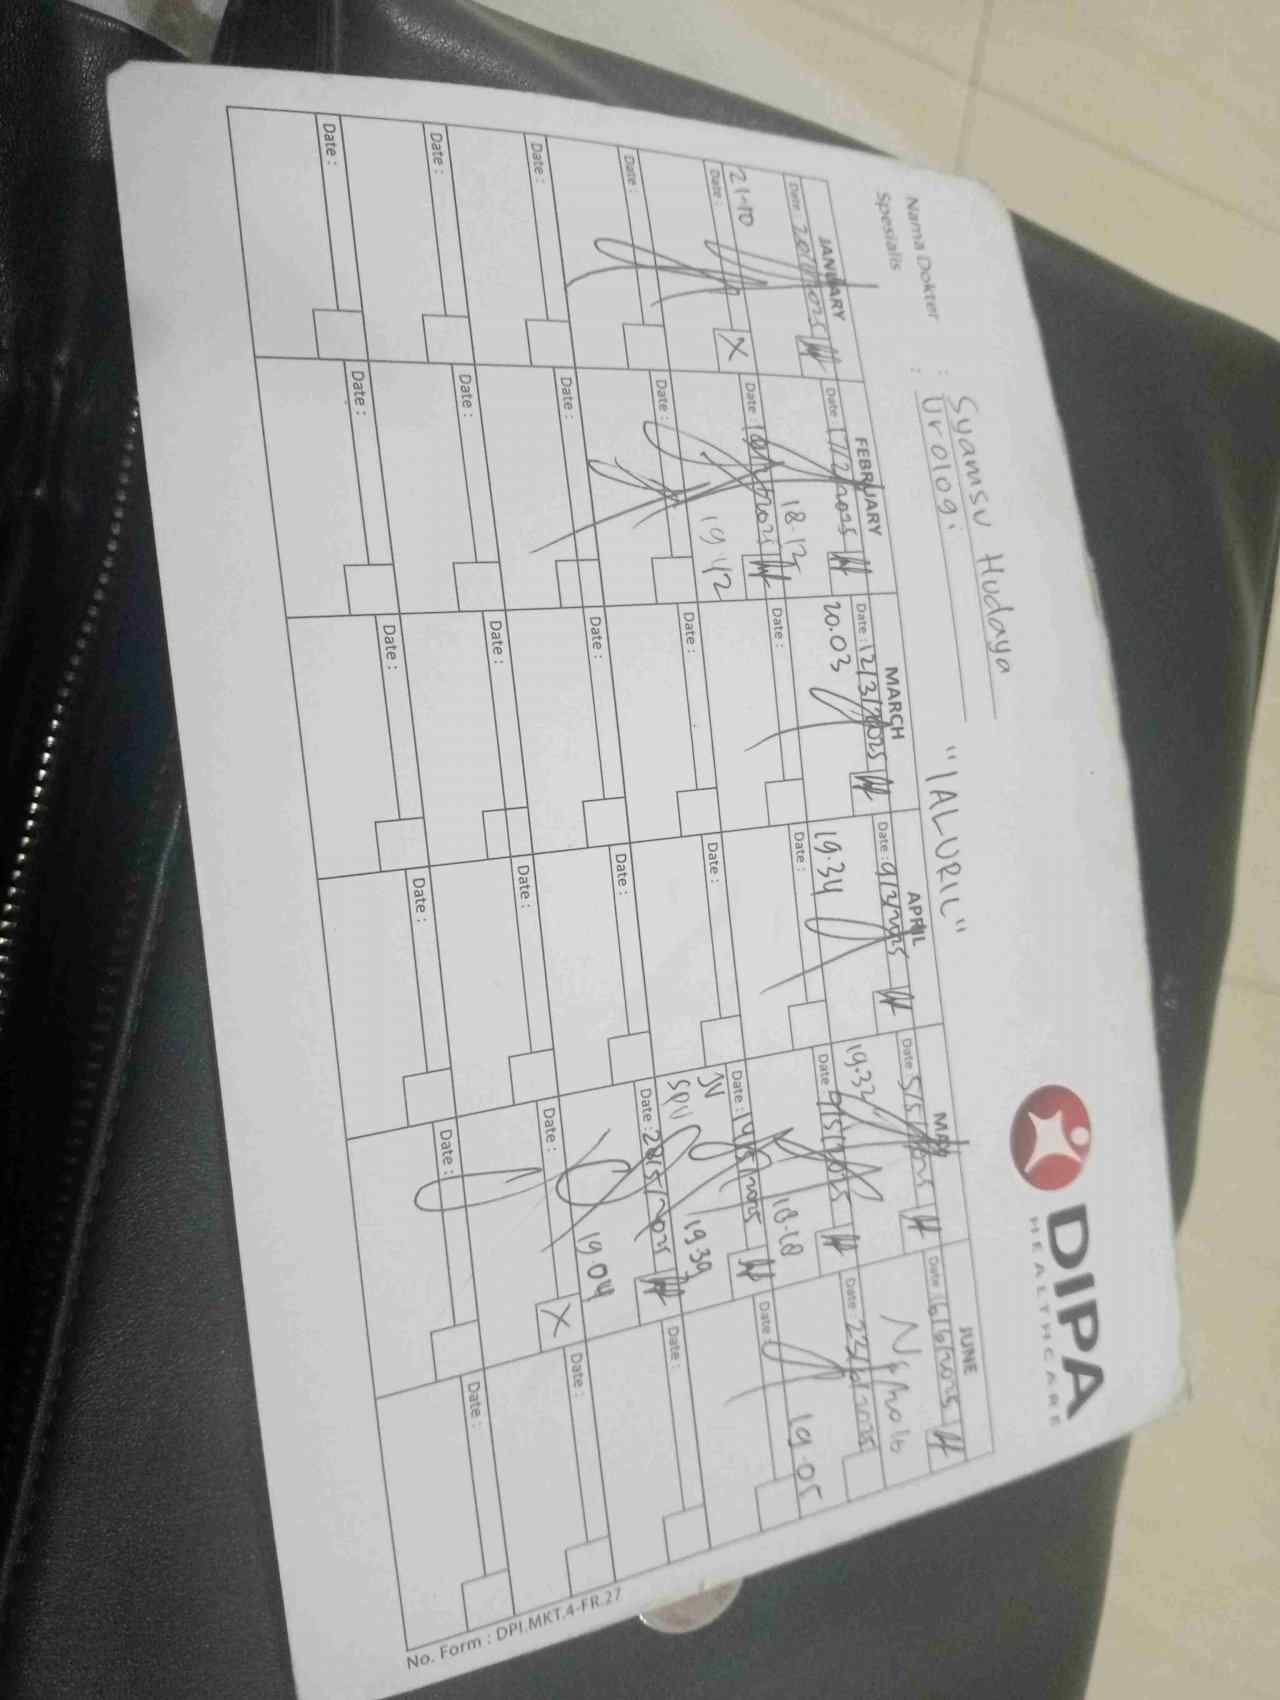 DIPA
HEALTHCARE
Nama Dokter : Syamsu Hudaya
Spesialis : Urologi
"IALURIL"
JANUARY FEBRUARY MARCH APRIL MAY JUNE
Date : Date : 17/2/2025 Date : 12/3/2025 Date : 9/3/2025 Date : 5/5/2025 Date : 16/6/2025
21-10 18.13 20.03 19.34 19.32
Date : X Date : Date : Date : Date : 9/5/2025 Date : 23/6/2025
19.42 18.18 19.05
Date : Date : Date : Date : Date : 14/5/2025 Date :
JV
SPV 19.39
Date : Date : Date : Date : Date : 28/5/2025 Date :
19.04
Date : Date : Date : Date : Date : X Date :
Date : Date : Date : Date : Date : Date :
No. Form : DPI.MKT.4-FR.27